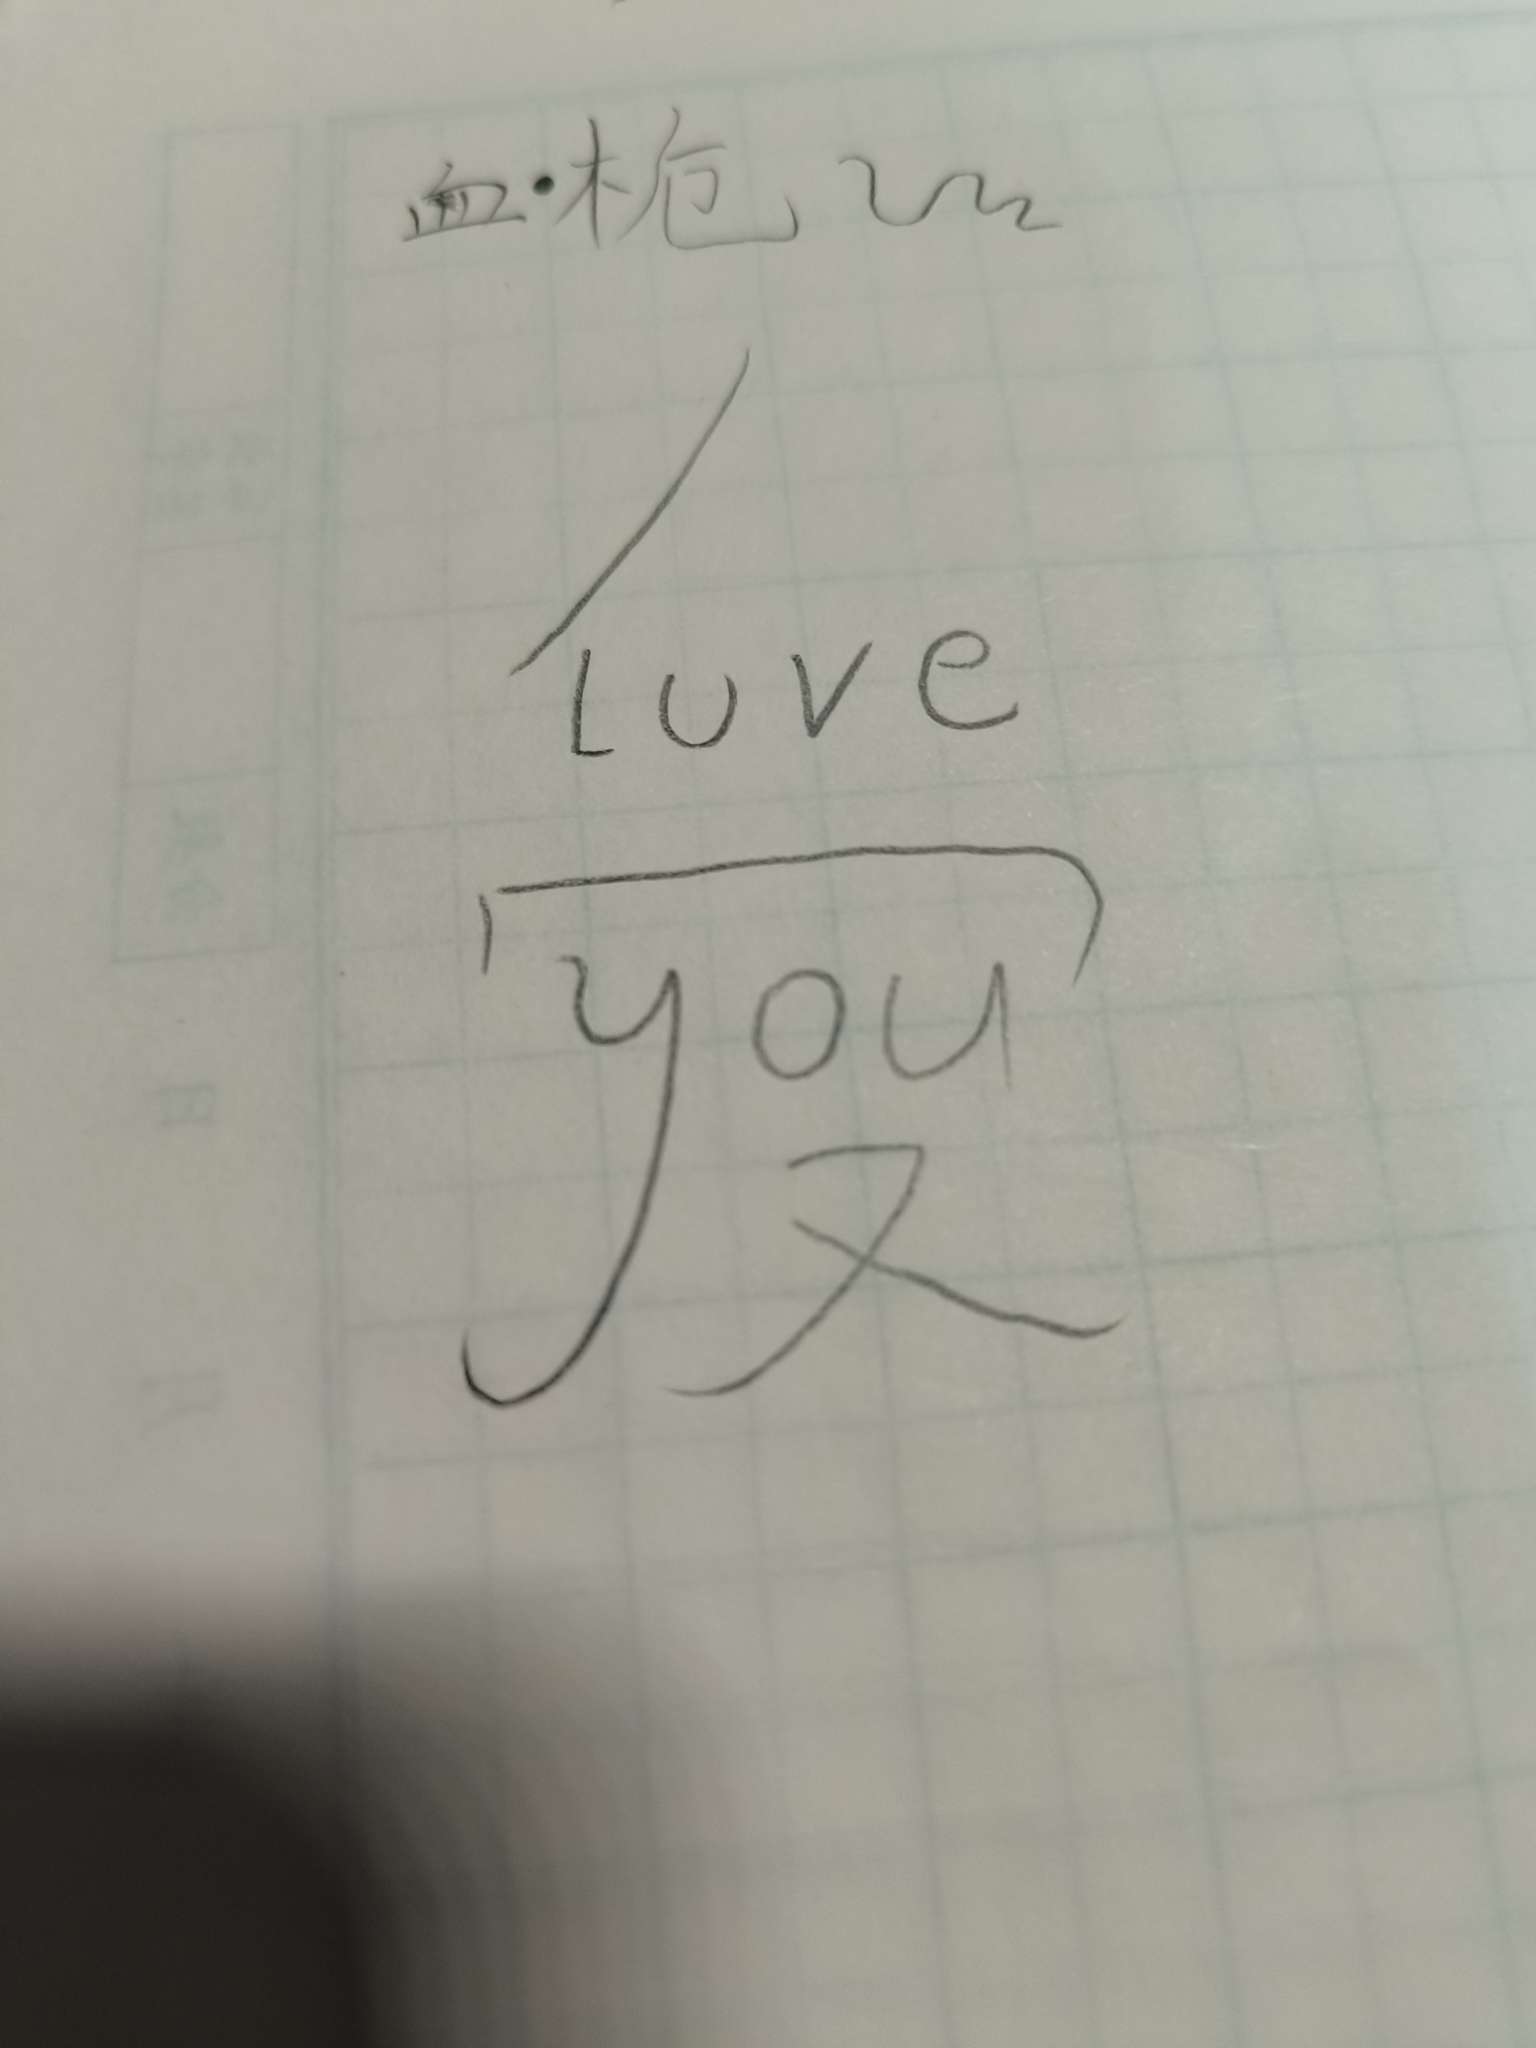 血·枪
love
you
又